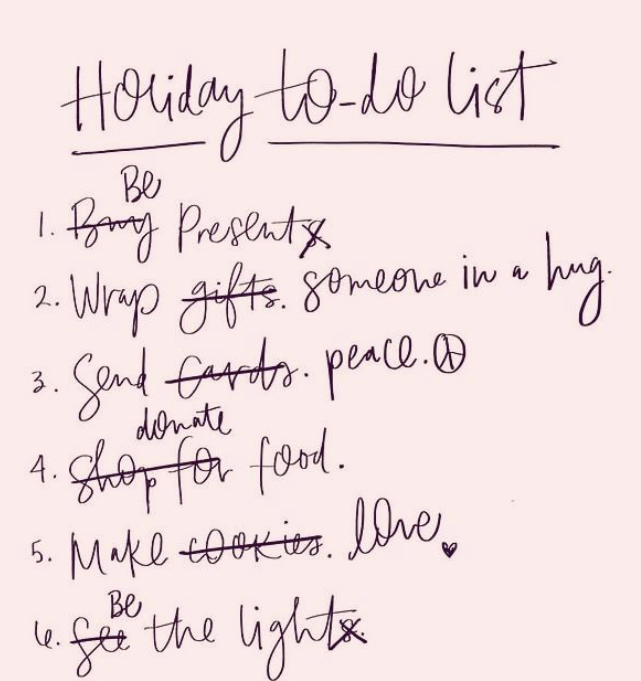 Holiday to-do list
Be
1. Buy Presents
2. Wrap gifts. someone in a hug.
3. Send cards. peace.
donate
4. Shop for food.
5. Make cookies. love
Be
6. See the lights.